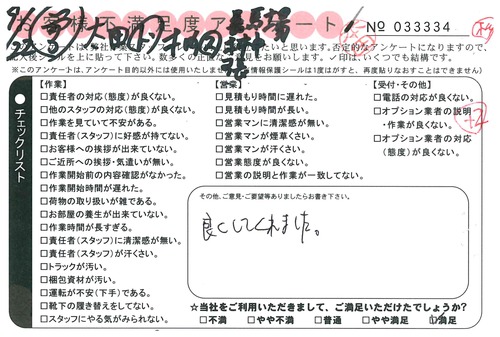 お客様不満足度アンケート
№ 033334
記入後シールを上に貼って下さい。数多くの正直なご意見をお願いします。✓印はいくつでも結構です。
チェックリスト
【作業】
□責任者の対応(態度)が良くない。
□他のスタッフの対応(態度)が良くない。
□作業を見ていて不安がある。
□責任者(スタッフ)に好感が持てない。
□お客様への挨拶が出来ていない。
□ご近所への挨拶・気遣いが無い。
□作業開始前の内容確認がなかった。
□作業開始時間が遅れた。
□荷物の取り扱いが雑である。
□お部屋の養生が出来ていない。
□作業時間が長すぎる。
□責任者(スタッフ)に清潔感が無い。
□責任者(スタッフ)が汗くさい。
□トラックが汚い。
□梱包資材が汚い。
□運転が不安(下手)である。
□靴下の履き替えをしてない。
□スタッフにやる気がみられない。
【営業】
□見積もり時間に遅れた。
□見積もり時間が長い。
□営業マンに清潔感が無い。
□営業マンが煙草くさい。
□営業マンが汗くさい。
□営業態度が良くない。
□営業の説明と作業が一致してない。
【受付・その他】
□電話の対応が良くない。
□オプション業者の説明
・作業が良くない。
□オプション業者の対応
(態度)が良くない。
+2
その他、ご意見・ご要望等ありましたらお書き下さい。
良くしてくれました。
☆当社をご利用いただきまして、ご満足いただけたでしょうか?
□不満 □やや不満 □普通 □やや満足 □満足